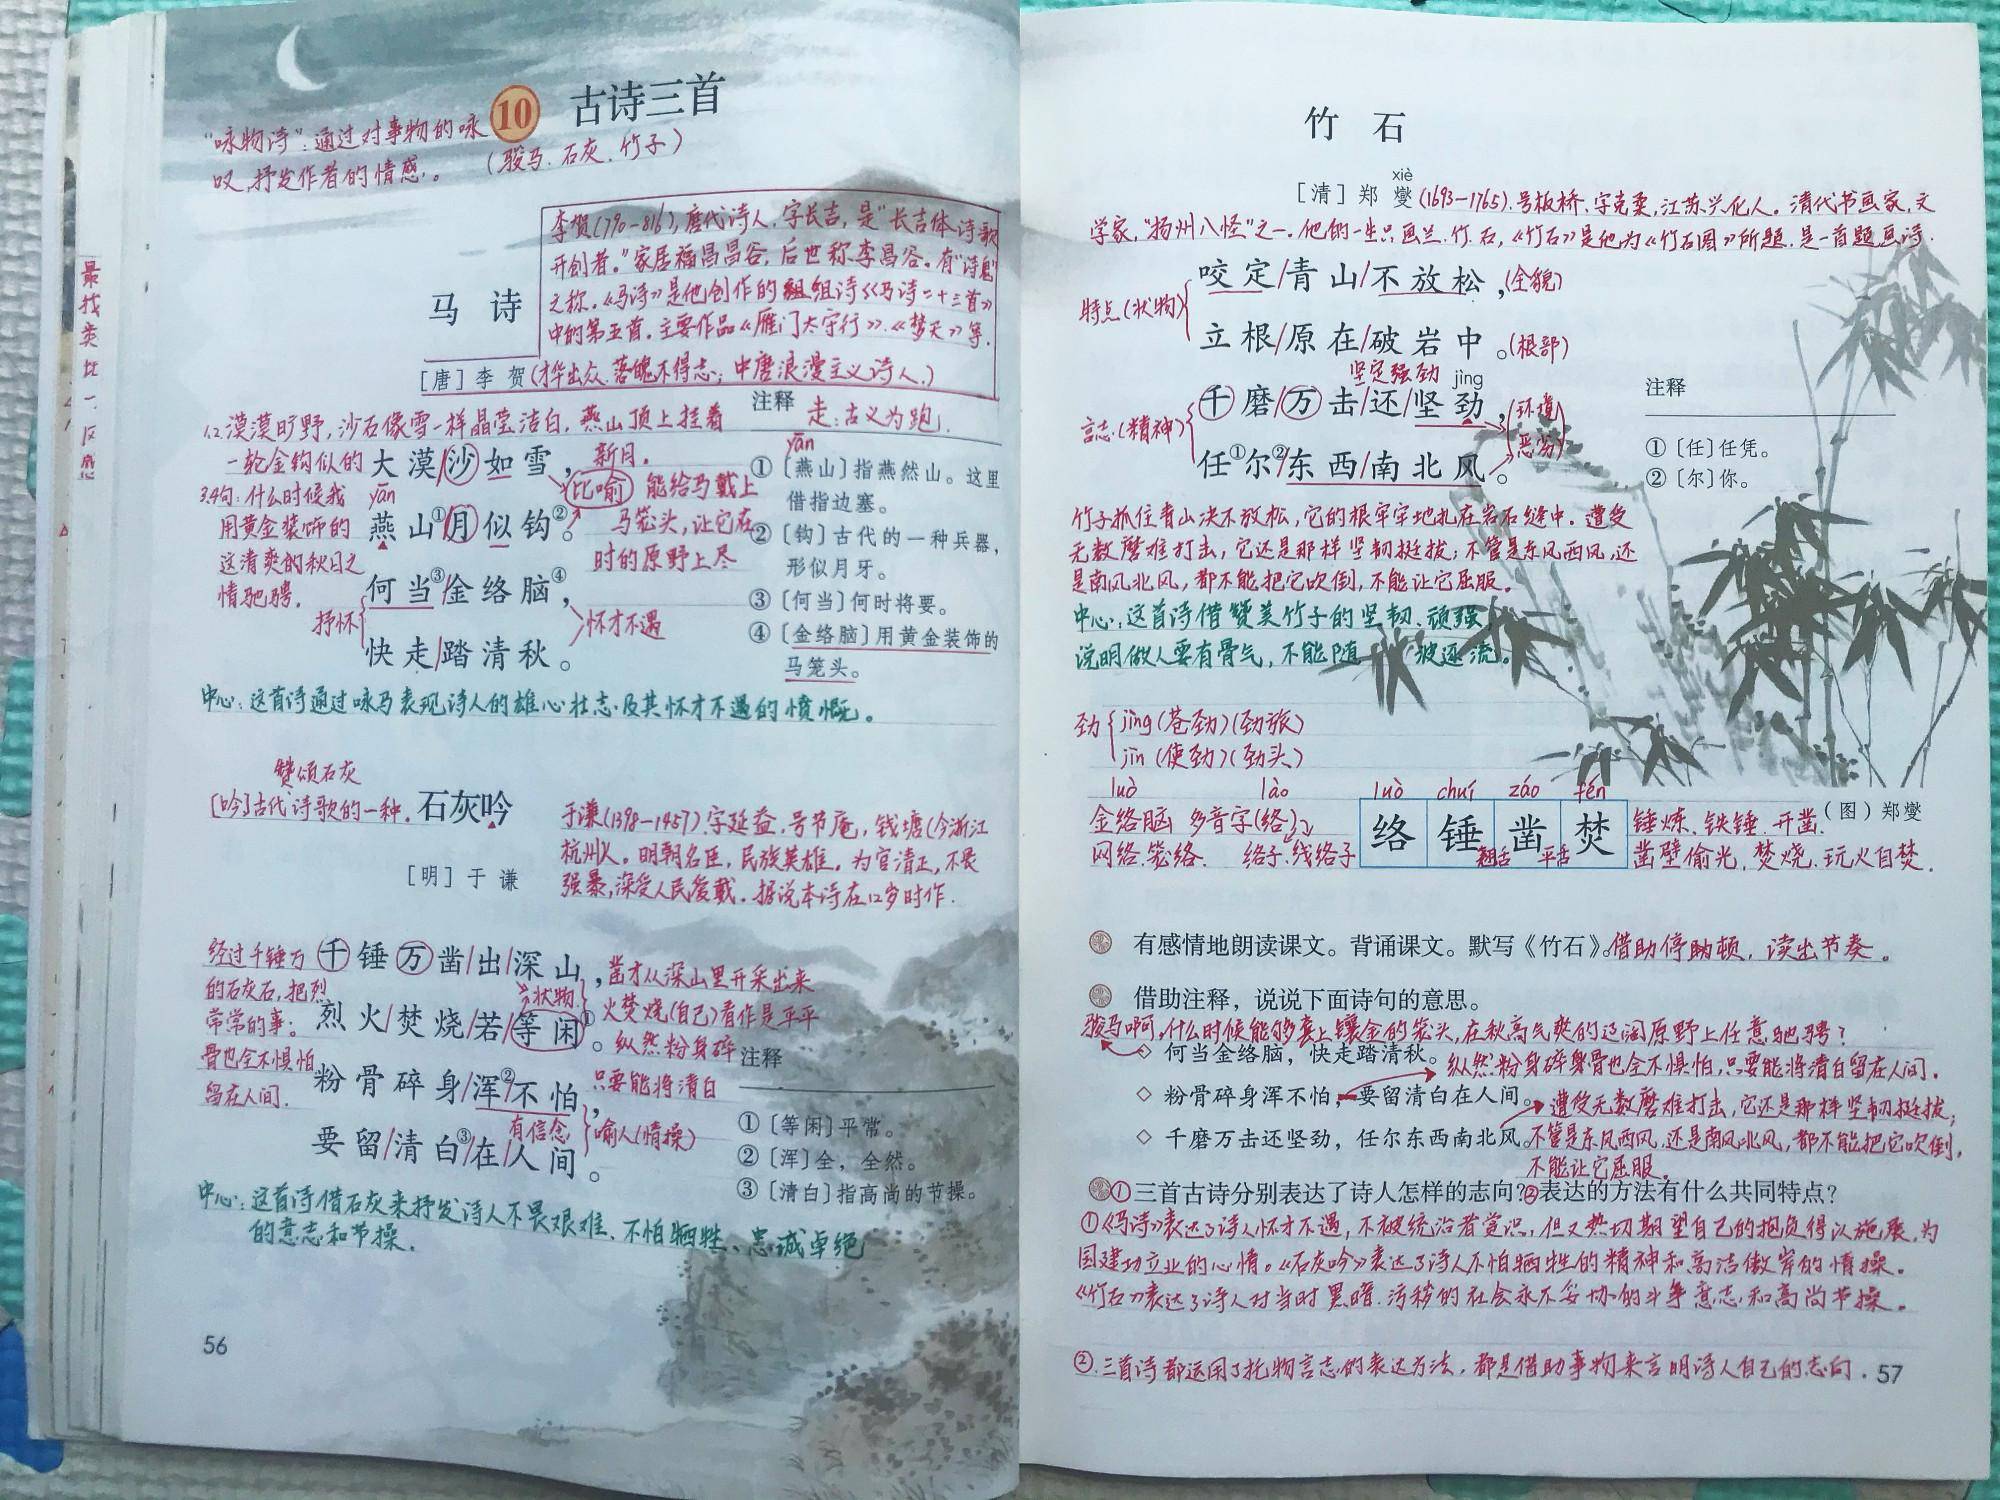 10 古诗三首
“咏物诗”：通过对事物的咏
叹，抒发作者的情感。
（骏马、石灰、竹子）
李贺（790—816），唐代诗人，字长吉，是“长吉体诗歌
开创者。”家居福昌昌谷，后世称李昌谷。有“诗鬼”
之称。《马诗》是他创作的组组诗《马诗二十三首》
中的第五首。主要作品《雁门太守行》、《梦天》等，
马诗
［唐］李贺（才华出众，落魄不得志；中唐浪漫主义诗人。）
注释
走：古义为跑。
1.2.漠漠旷野，沙石像雪一样晶莹洁白，燕山顶上挂着
一轮金钩似的
新月。
3.4句：什么时候我
能给马戴上
用黄金装饰的
马笼头，让它在
这清爽的秋日之
时的原野上尽
情驰骋。
大漠/沙如雪，
比喻
yān
燕山①/月似钩②。
何当③/金络脑④，
快走/踏清秋。
抒怀
怀才不遇
yān
①［燕山］指燕然山。这里
借指边塞。
②［钩］古代的一种兵器，
形似月牙。
③［何当］何时将要。
④［金络脑］用黄金装饰的
马笼头。
中心：这首诗通过咏马表现诗人的雄心壮志及其怀才不遇的愤慨。
赞颂石灰
［吟］古代诗歌的一种。
石灰吟
［明］于谦
于谦（1398—1457）字延益，号节庵，钱塘（今浙江
杭州人。明朝名臣，民族英雄。为官清正，不畏
强暴，深受人民爱戴。据说本诗在12岁时作.
经过千锤万
凿才从深山里开采出来
的石灰石，把烈
火焚烧（自己）看作是平平
常常的事；
纵然粉身碎
骨也全不惧怕
只要能将清白
留在人间.
千锤万凿/出/深山，
状物
烈火/焚烧/若/等闲①。
粉骨碎身/浑②不怕，
有信念
喻人（情操）
要留/清白③/在/人间。
注释
①［等闲］平常。
②［浑］全，全然。
③［清白］指高尚的节操。
中心：这首诗借石灰来抒发诗人不畏艰难、不怕牺牲、忠诚卓绝
的意志和节操.
56
竹石
xiè
［清］郑燮（1693—1765）.号板桥、字克柔，江苏兴化人。清代书画家，文
学家，“扬州八怪”之一。他的一生只画兰、竹、石，《竹石》是他为《竹石图》所题，是一首题画诗.
特点（状物）
咬定/青山/不放松，（全貌）
立根/原在/破岩中。（根部）
坚定强劲
jìng
言志.（精神）
千磨/万击/还/坚劲，
任①尔②/东西/南北风。
（环境
恶劣）
注释
①［任］任凭。
②［尔］你。
竹子抓住青山决不放松，它的根牢牢地扎在岩石缝中。遭受
无数磨难打击，它还是那样坚韧挺拔；不管是东风西风，还
是南风北风，都不能把它吹倒，不能让它屈服。
中心：这首诗借赞美竹子的坚韧、顽强，
说明做人要有骨气，不能随 波逐流。
劲
jìng（苍劲）（劲旅）
jìn（使劲）（劲头）
luò lào
金络脑 多音字（络）
网络.笼络. 络子.线络子
luò chuí záo fén
络 锤 凿 焚
翘舌 平舌
锤炼、铁锤、开凿、
凿壁偷光，焚烧、玩火自焚.
（图）郑燮
有感情地朗读课文。背诵课文。默写《竹石》。借助停顿，读出节奏。
借助注释，说说下面诗句的意思。
骏马啊，什么时候能够套上镶金的笼头，在秋高气爽的辽阔原野上任意驰骋？
◇ 何当金络脑，快走踏清秋。
纵然粉身碎骨也全不惧怕，只要能将清白留在人间.
◇ 粉骨碎身浑不怕，要留清白在人间。
遭受无数磨难打击，它还是那样坚韧挺拔；
◇ 千磨万击还坚劲，任尔东西南北风。
不管是东风西风，还是南风北风，都不能把它吹倒，
不能让它屈服。
①三首古诗分别表达了诗人怎样的志向？②表达的方法有什么共同特点？
①《马诗》表达了诗人怀才不遇，不被统治者赏识，但又热切期望自己的抱负得以施展，为
国建功立业的心情。《石灰吟》表达了诗人不怕牺牲的精神和高洁傲岸的情操。
《竹石》表达了诗人对当时黑暗、污秽的社会永不妥协的斗争意志和高尚节操。
②.三首诗都运用了托物言志的表达方法，都是借助事物来言明诗人自己的志向.
57